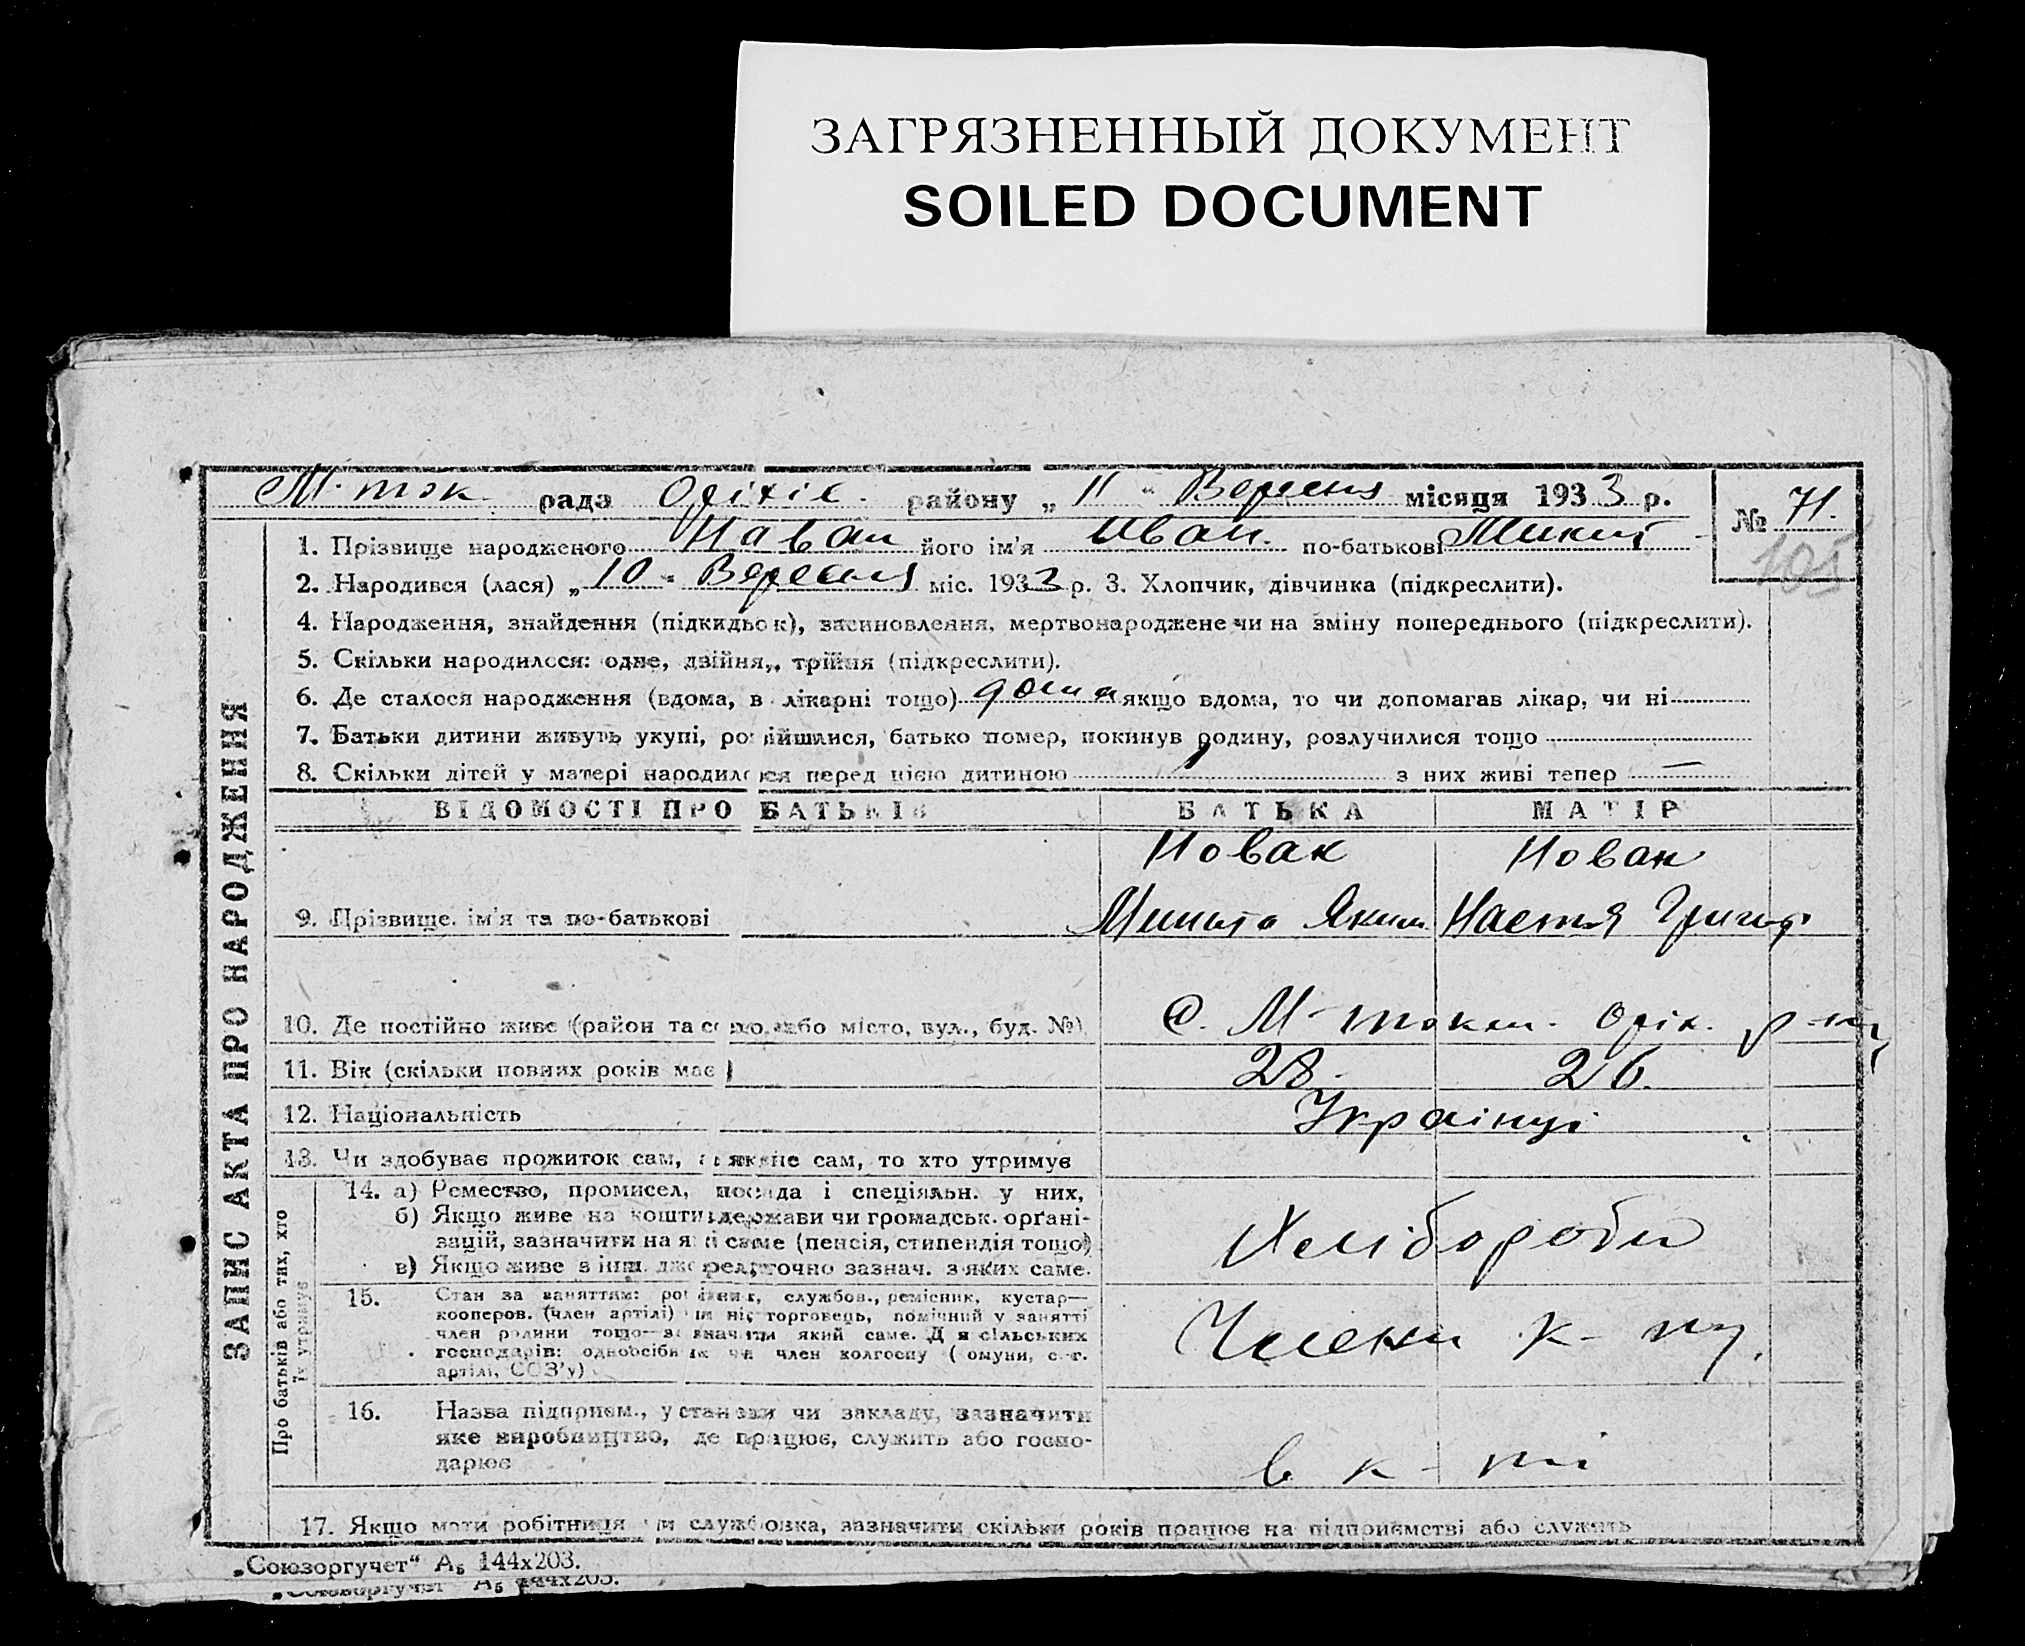 ЗАГРЯЗНЕННЫЙ ДОКУМЕНТ
SOILED DOCUMENT
М-ток. рада Оріхів. району „ 11 “ Вересня місяця 1933 р.
№ 71.
105
1. Прізвище народженого Новак його ім'я Иван. по-батькові Микит
2. Народився (лася) „ 10 “ Вересня міс. 1933 р. 3. Хлопчик, дівчинка (підкреслити).
4. Народження, знайдення (підкидьок), засиновлення, мертвонароджене чи на зміну попереднього (підкреслити).
5. Скільки народилося: одне, двійня, трійня (підкреслити).
6. Де сталося народження (вдома, в лікарні тощо) дома якщо вдома, то чи допомагав лікар, чи ні
7. Батьки дитини живуть укупі, розійшлися, батько помер, покинув родину, розлучилися тощо
8. Скільки дітей у матері народилося перед цією дитиною 1 з них живі тепер —
ВІДОМОСТІ ПРО БАТЬКІВ БАТЬКА МАТІР
Новак Новак
9. Прізвище, ім'я та по-батькові Микита Яким. Настя Григор.
10. Де постійно живе (район та село, або місто, вул., буд. №) С. М-токм. Оріх. р-ну
11. Вік (скільки повних років має) 28. 26.
12. Національність Українці
13. Чи здобуває прожиток сам, а як не сам, то хто утримує
14. а) Ремество, промисел, посада і спеціяльн. у них,
б) Якщо живе на кошти держави чи громадськ. орґані-
зацій, зазначити на які саме (пенсія, стипендія тощо)
в) Якщо живе з інш. джерел, точно зазнач. з яких саме.
Хлібороби
15. Стан за заняттям: робітник, службов., ремісник, кустар—
кооперов. (член артілі) чи ні, торговець, помічний у занятті
член родини тощо—зазначити який саме. Для сільських
господарів: одноосібник чи член колгоспу (комуни, с.-г.
артілі, СОЗ'у)
Члени к-пу.
16. Назва підприєм., установи чи закладу, зазначити
яке виробництво, де працює, служить або госпо-
дарює
в к-пі
17. Якщо мати робітниця чи службовка, зазначити скільки років працює на підприємстві або служить
ЗАПИС АКТА ПРО НАРОДЖЕННЯ
Про батьків або тих, хто
їх утримує
„Союзоргучет“ А₅ 144х203.
„Союзоргучет“ А₅ 144х203.